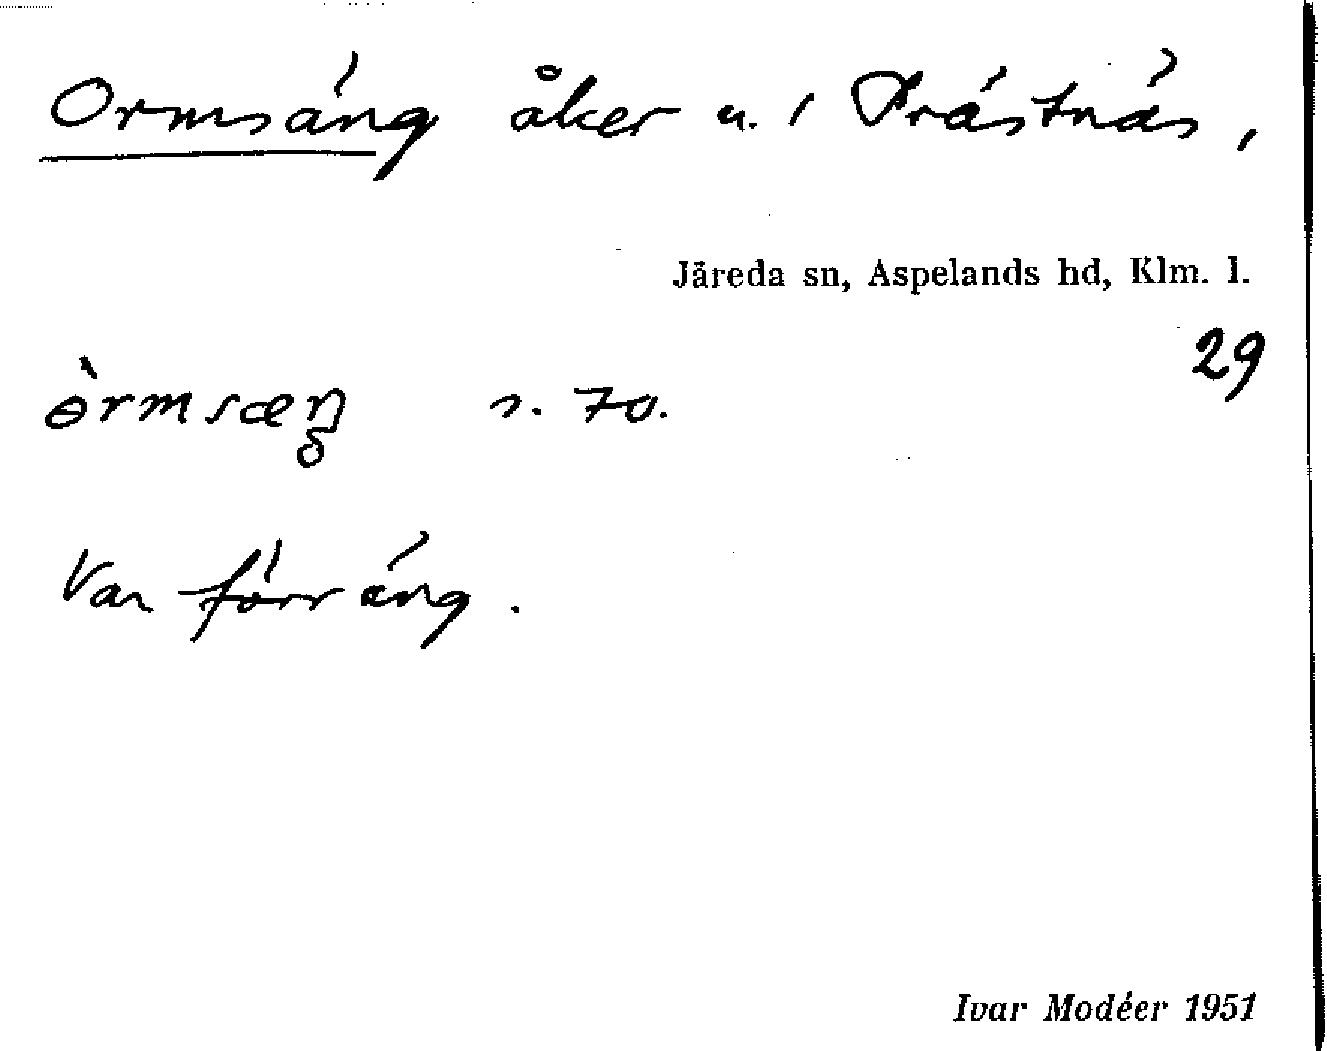 Ormsäng åker u. / Prästnäs,
Järeda sn, Aspelands hd, Klm. l.
29
ɵ̀rmsæŋ s. 70.
Var förr äng.
Ivar Modéer 1951